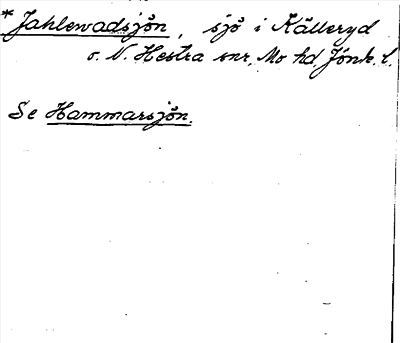 * Jahlewadsjön, sjö i Källeryd
o. N. Hestra snr, Mo hd, Jönk. l.
Se Hammarsjön.